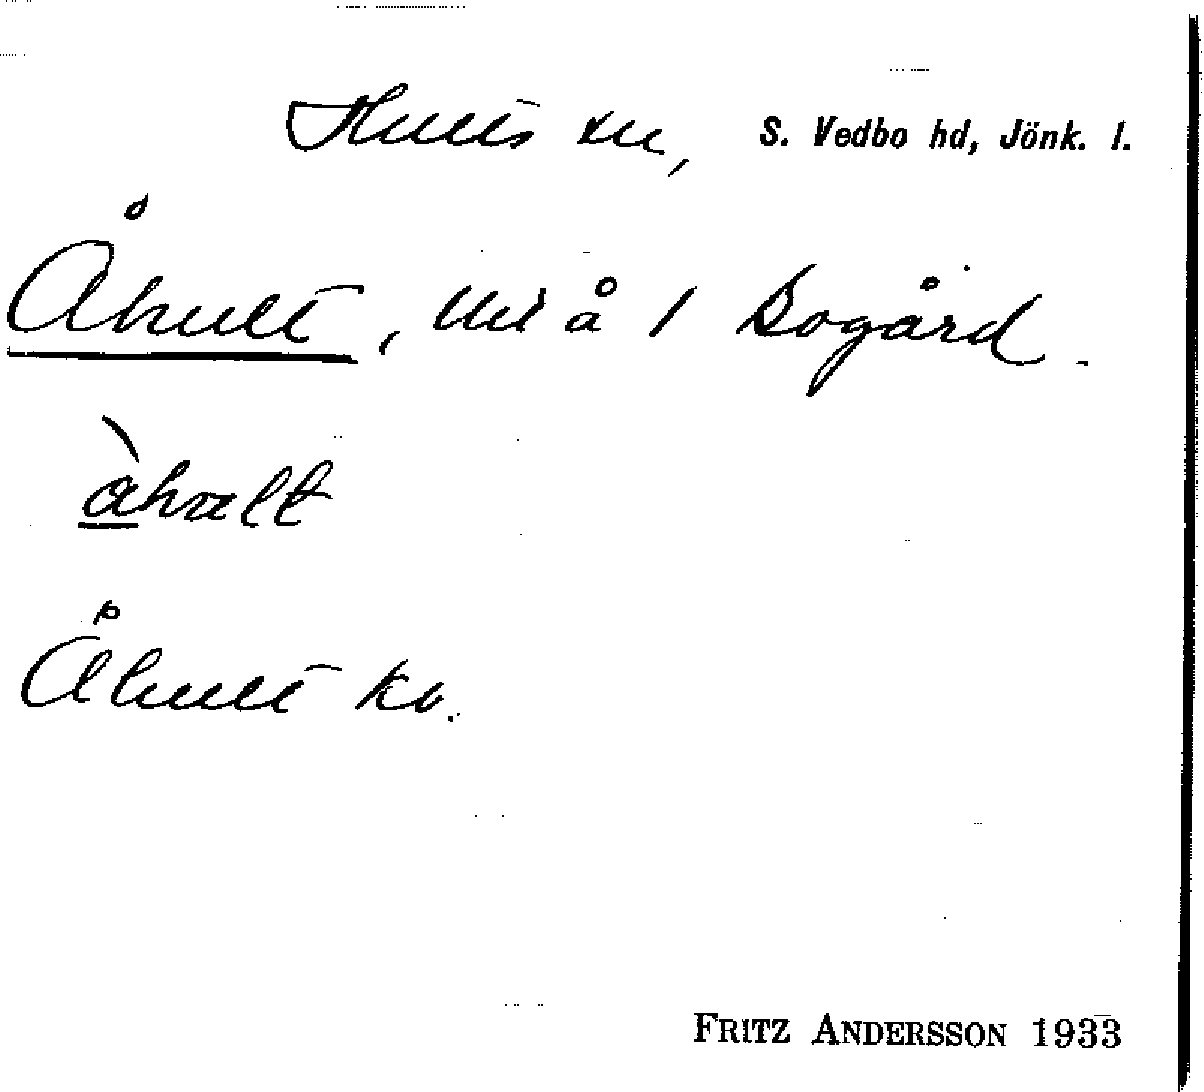 Hults sn, S. Vedbo hd, Jönk. l.
Åhult, und å / Bogård.
åhvllt
Åhult kb.
FRITZ ANDERSSON 1933